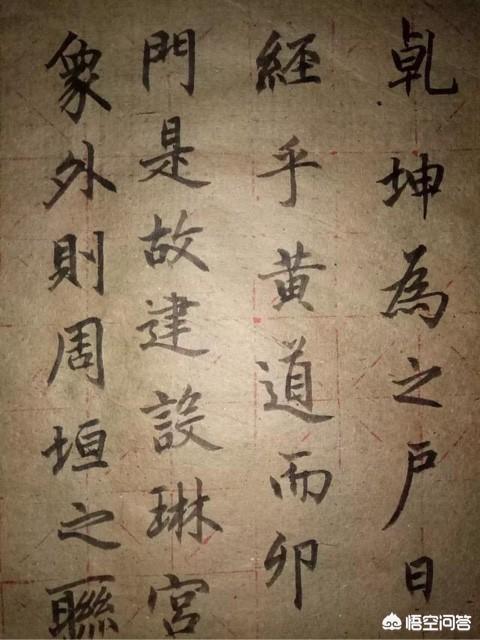 乹坤為之户日
經乎黄道而卯
門是故建設琳宮
象外則周垣之聯
悟空问答